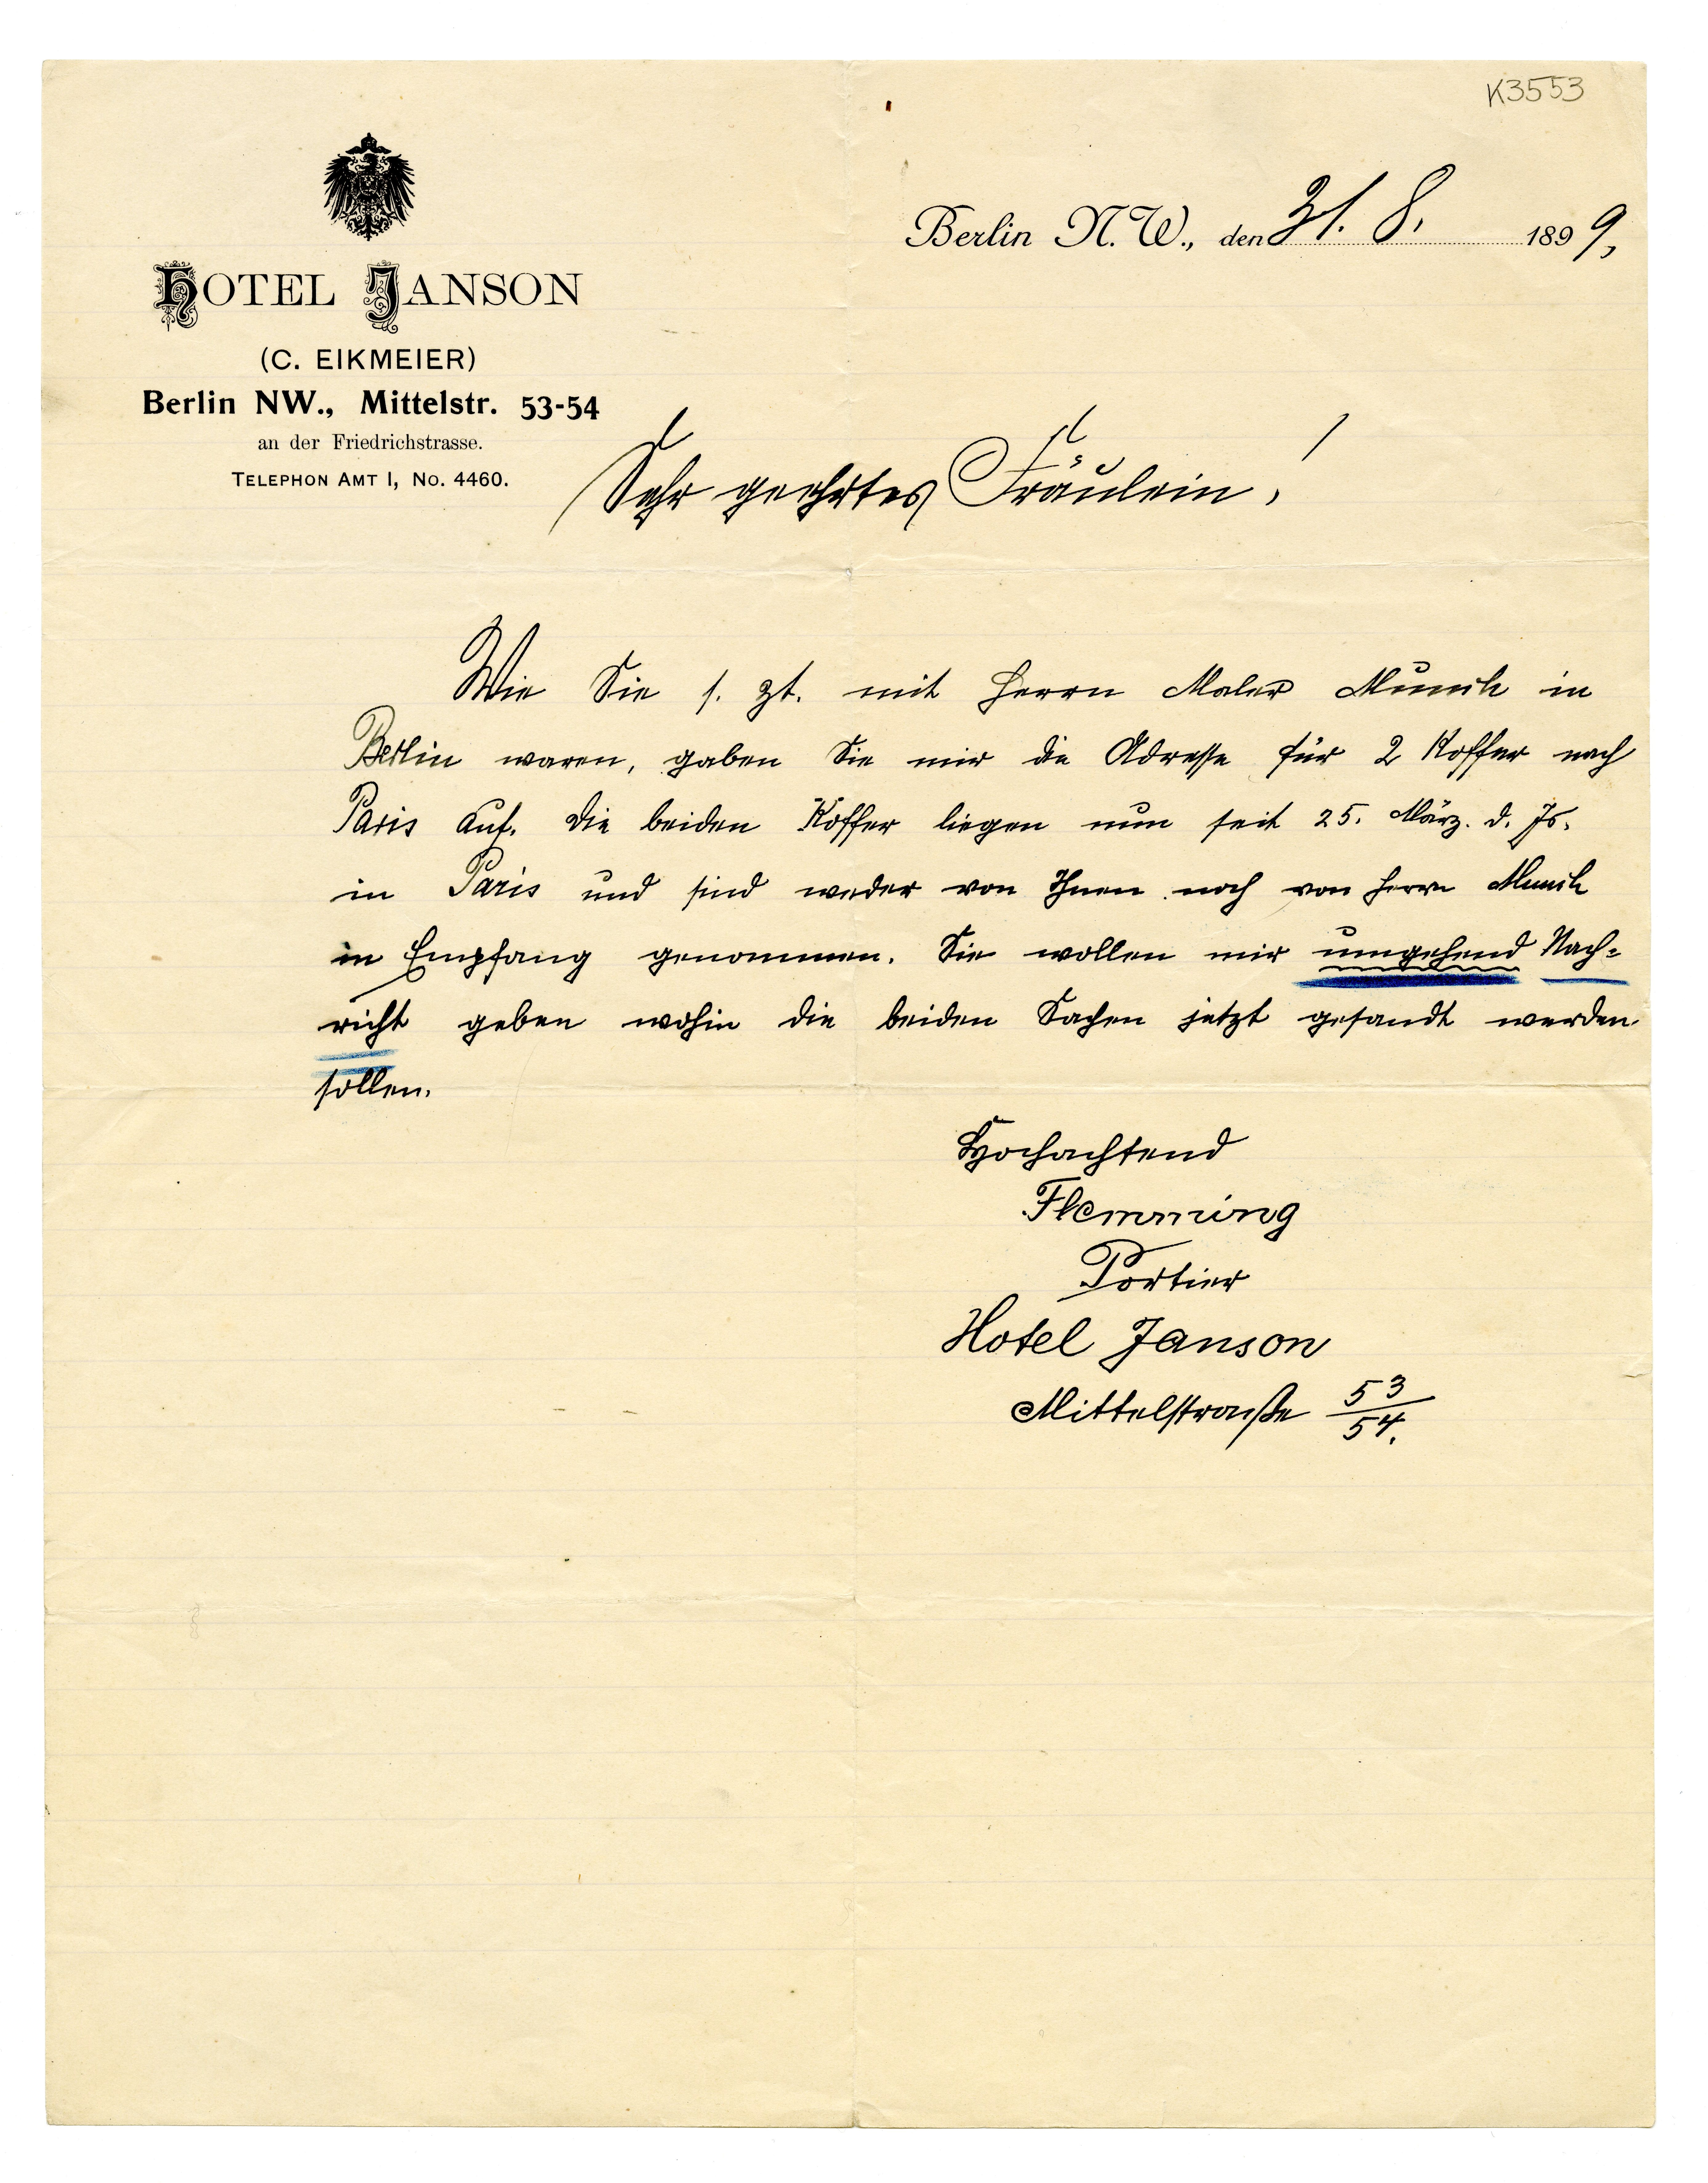 K3553
HOTEL JANSON
(C. EIKMEIER)
Berlin NW., Mittelstr. 53-54
an der Friedrichstrasse.
TELEPHON AMT I, No. 4460.
Berlin N. W., den 31. 8. 1899,
Sehr geehrtes Fräulein!
Wie Sie s. Zt. mit Herrn Maler Munch in
Berlin waren, gaben Sie mir die Adresse für 2 Koffer nach
Paris auf. Die beiden Koffer liegen nun seit 25. März. d. Js.
in Paris und sind weder von Ihnen noch von Herrn Munch
in Empfang genommen. Sie wollen mir umgehend Nach=
richt geben wohin die beiden Sachen jetzt gesandt werden
sollen.
Hochachtend
Flemming
Portier
Hotel Janson
Mittelstraße 53/54.